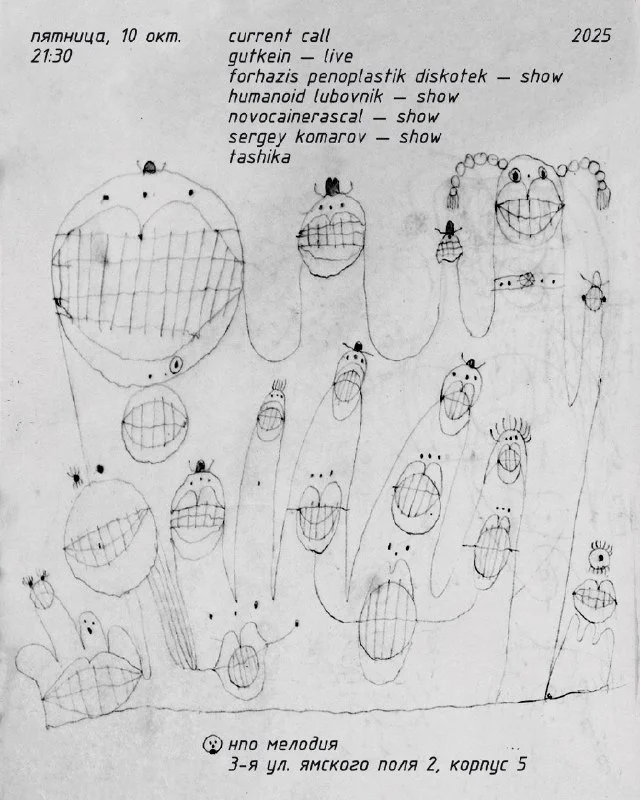 пятница, 10 окт.
21:30
current call
gutkein — live
forhazis penoplastik diskotek — show
humanoid lubovnik — show
novocainerascal — show
sergey komarov — show
tashika
2025
нпо мелодия
3-я ул. ямского поля 2, корпус 5